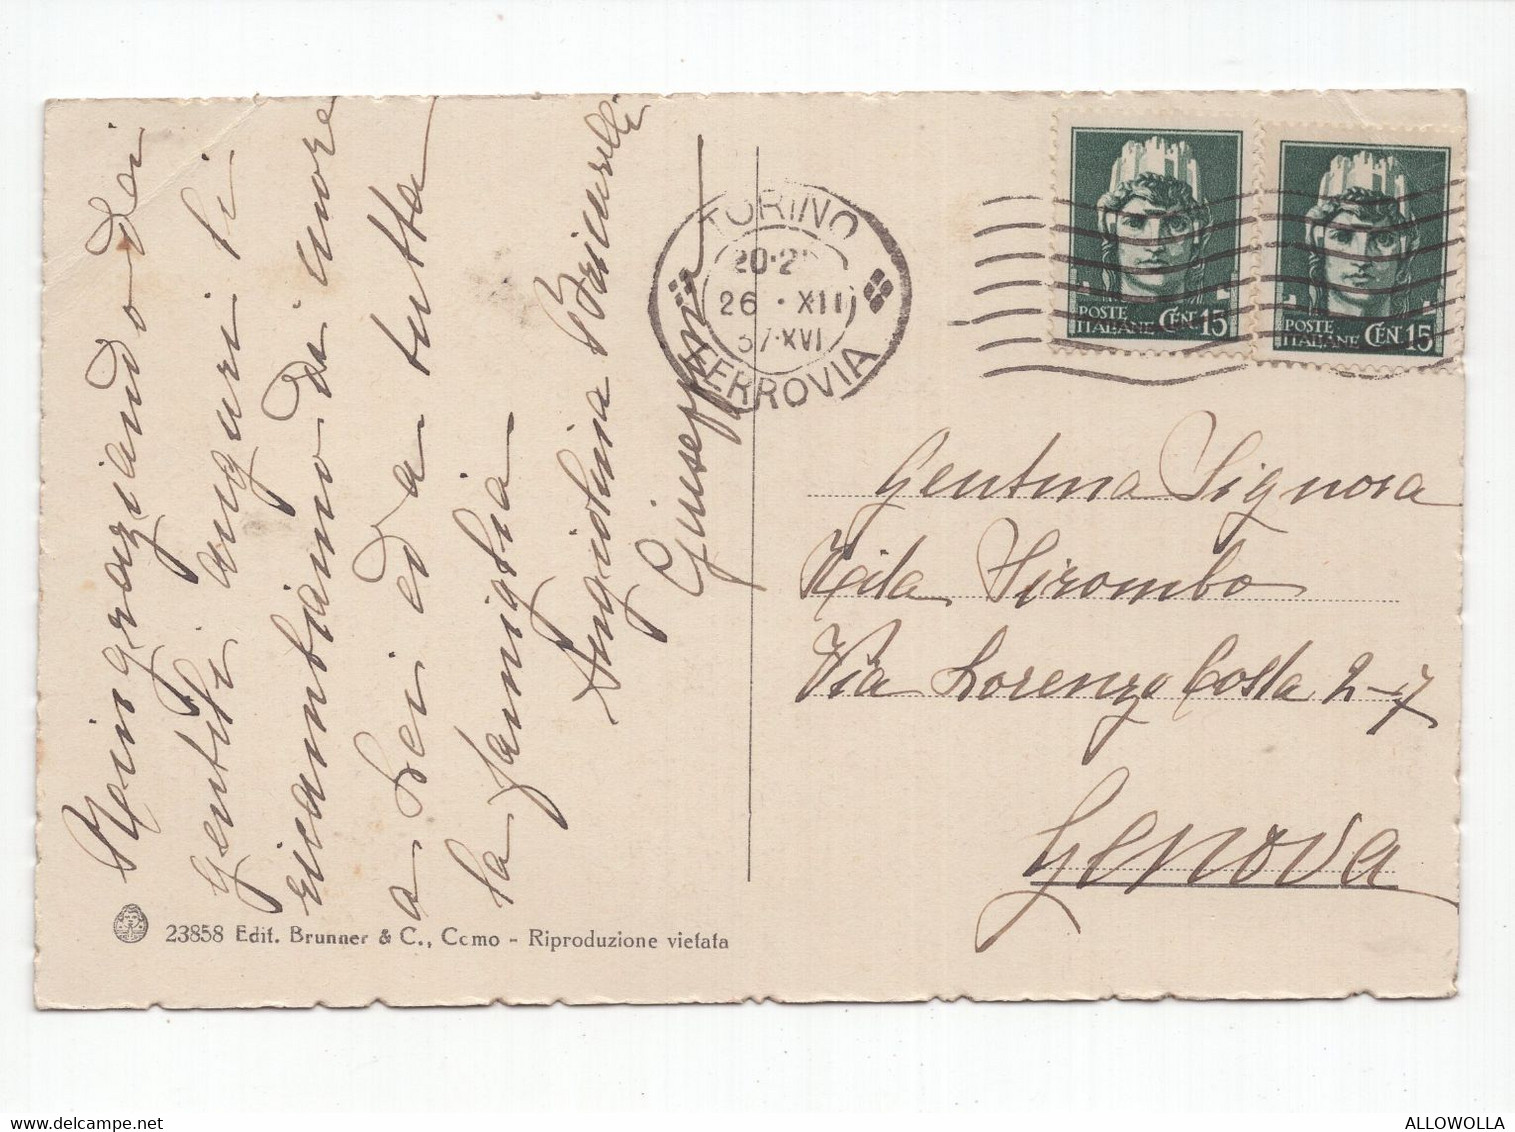 Rein graziando dei
gentili auguri li
ricambiamo di cuore
a Lei ed a tutta
la famiglia
Angiolina
Giuseppina
TORINO
20·2
26 · XII
37·XVI
FERROVIA
POSTE ITALIANE CEN. 15
POSTE ITALIANE CEN. 15
Gentma Signora
Rita Tirombo
Via Lorenzo Costa 2-7
Genova
23858 Edit. Brunner & C., Como - Riproduzione vietata
ALLOWOLLA